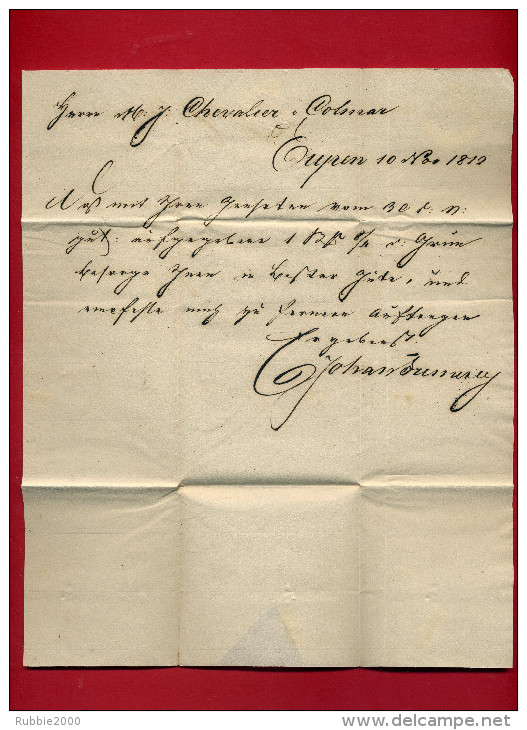 Herrn M. J. Chevalier Colmar
Eupen 10 Nbr 1812
mit Ihren Geehrten vom 30
aufgegebene 1
besorge Ihnen in bester Güte, und
empfehle mich zu fernern Aufträgen
Ergebenst
Johan
Rubbie2000
delcampe.net